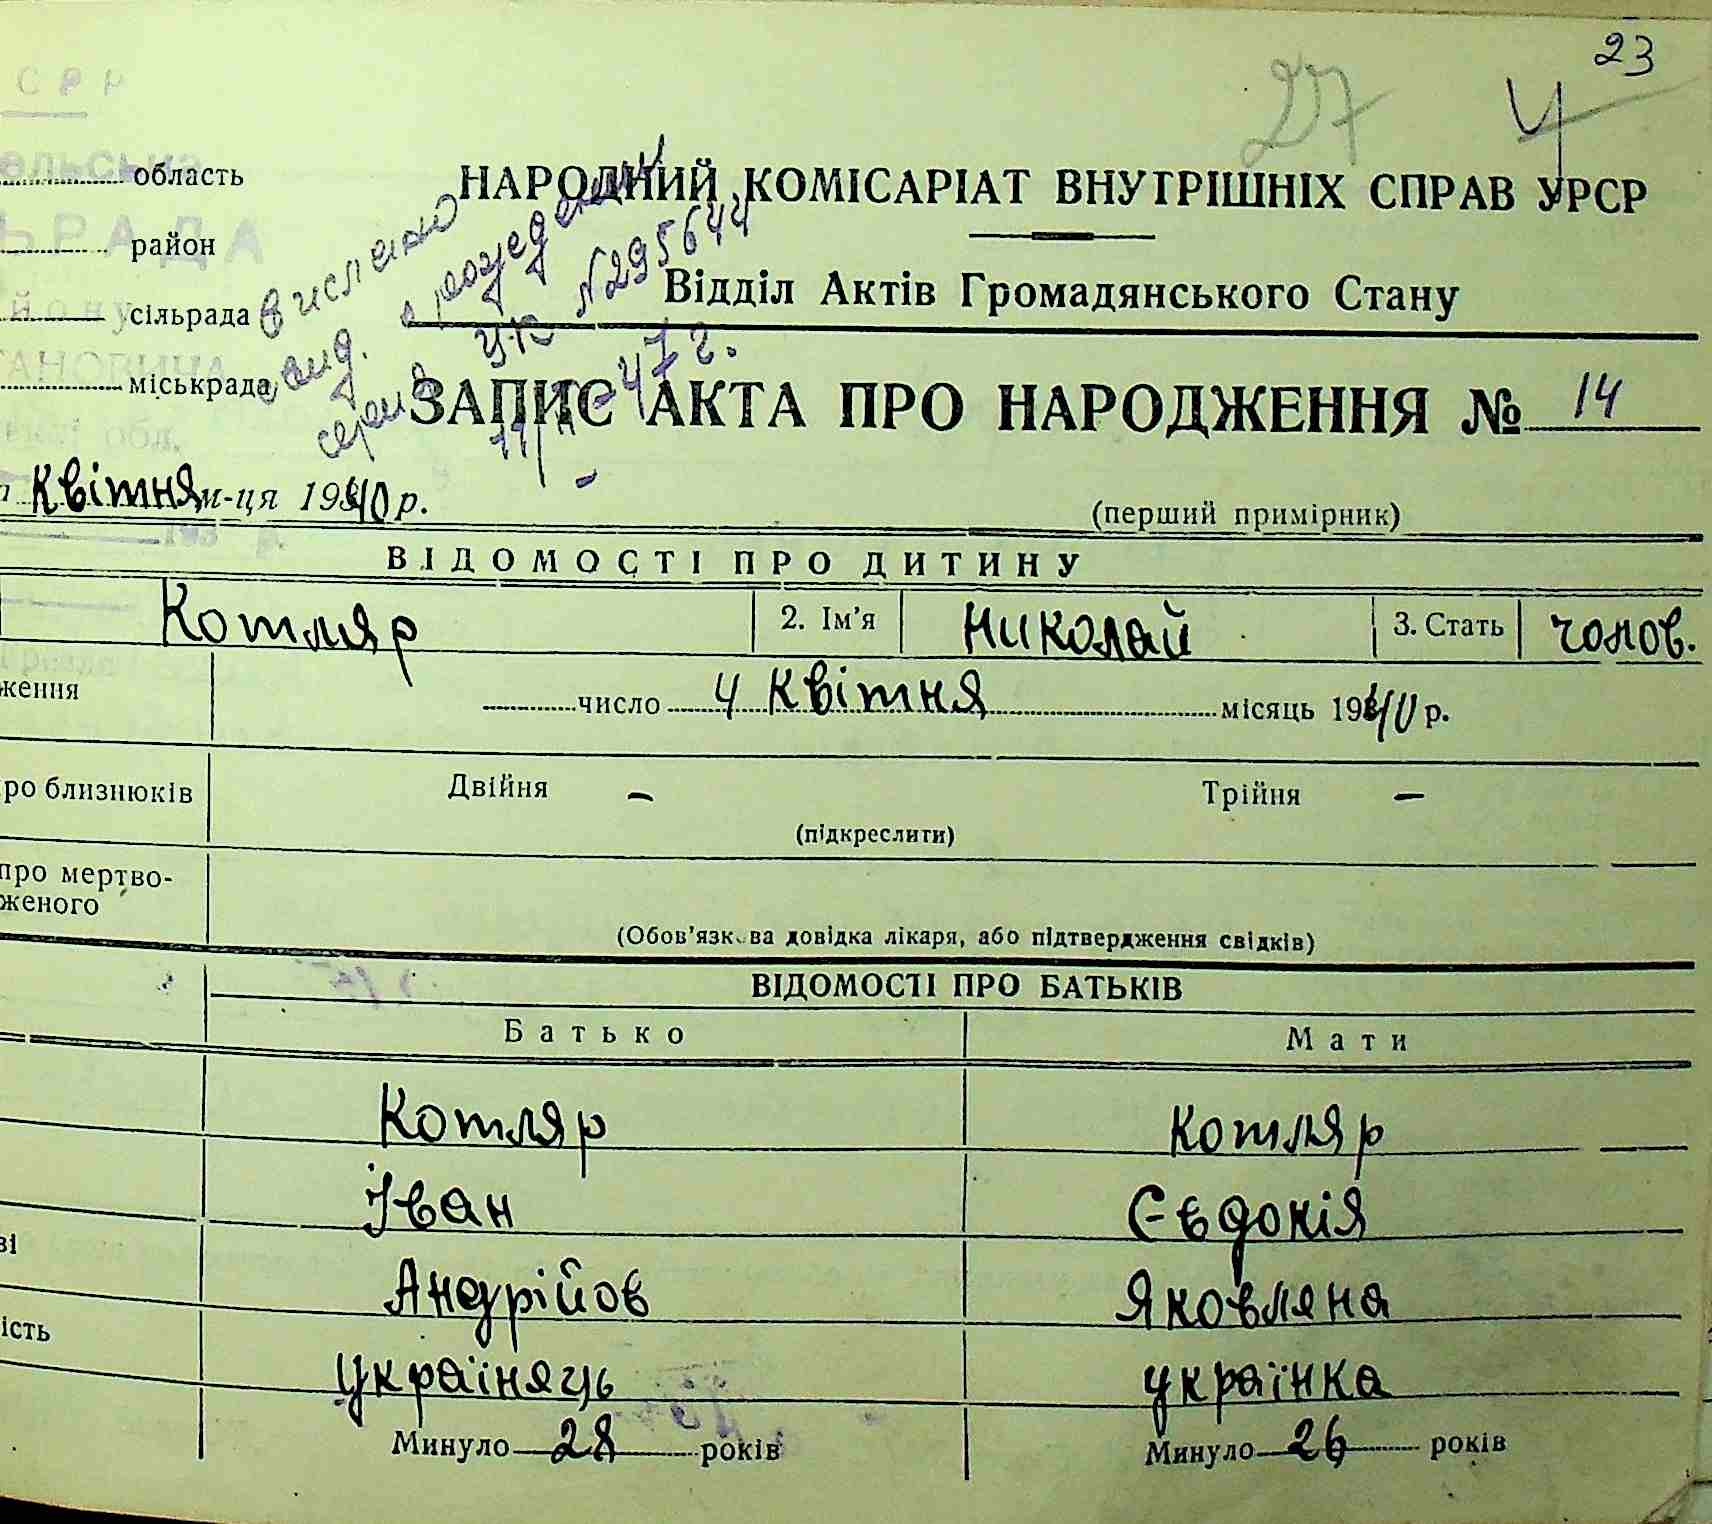 23
27
4
область
НАРОДНИЙ КОМІСАРІАТ ВНУТРІШНІХ СПРАВ УРСР
РАДА
район
Відділ Актів Громадянського Стану
сільрада
міськрада
выслано
свид. о рождении
серия УК №295644
47 г.
ЗАПИС АКТА ПРО НАРОДЖЕННЯ № 14
обл.
квітня м-ця 1940 р.
(перший примірник)
ВІДОМОСТІ ПРО ДИТИНУ
Котляр 2. Ім'я Николай 3. Стать чолов.
ження число 4 квітня місяць 1940 р.
ро близнюків Двійня — Трійня —
(підкреслити)
про мертво-
женого
(Обов'язкова довідка лікаря, або підтвердження свідків)
ВІДОМОСТІ ПРО БАТЬКІВ
Батько Мати
Котляр Котляр
Іван Євдокія
ві Андрійов Яковляна
ість україняць українка
Минуло 28 років Минуло 26 років